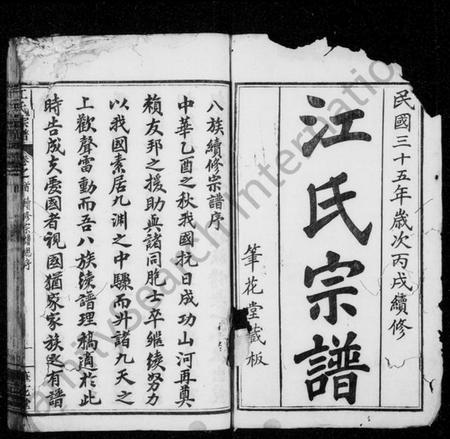 民國三十五年歲次丙戌續修
江氏宗譜
筆花堂藏板
八族續修宗譜序
中華乙酉之秋我國抗日成功山河再奠
賴友邦之援助與諸同胞士卒繼續努力
以我國素居九淵之中驟而升諸九天之
上歡聲雷動而吾八族續譜理稿適於此
時告成夫愛國者視國猶家家族之有譜
江氏宗譜 卷之首 續修宗譜序